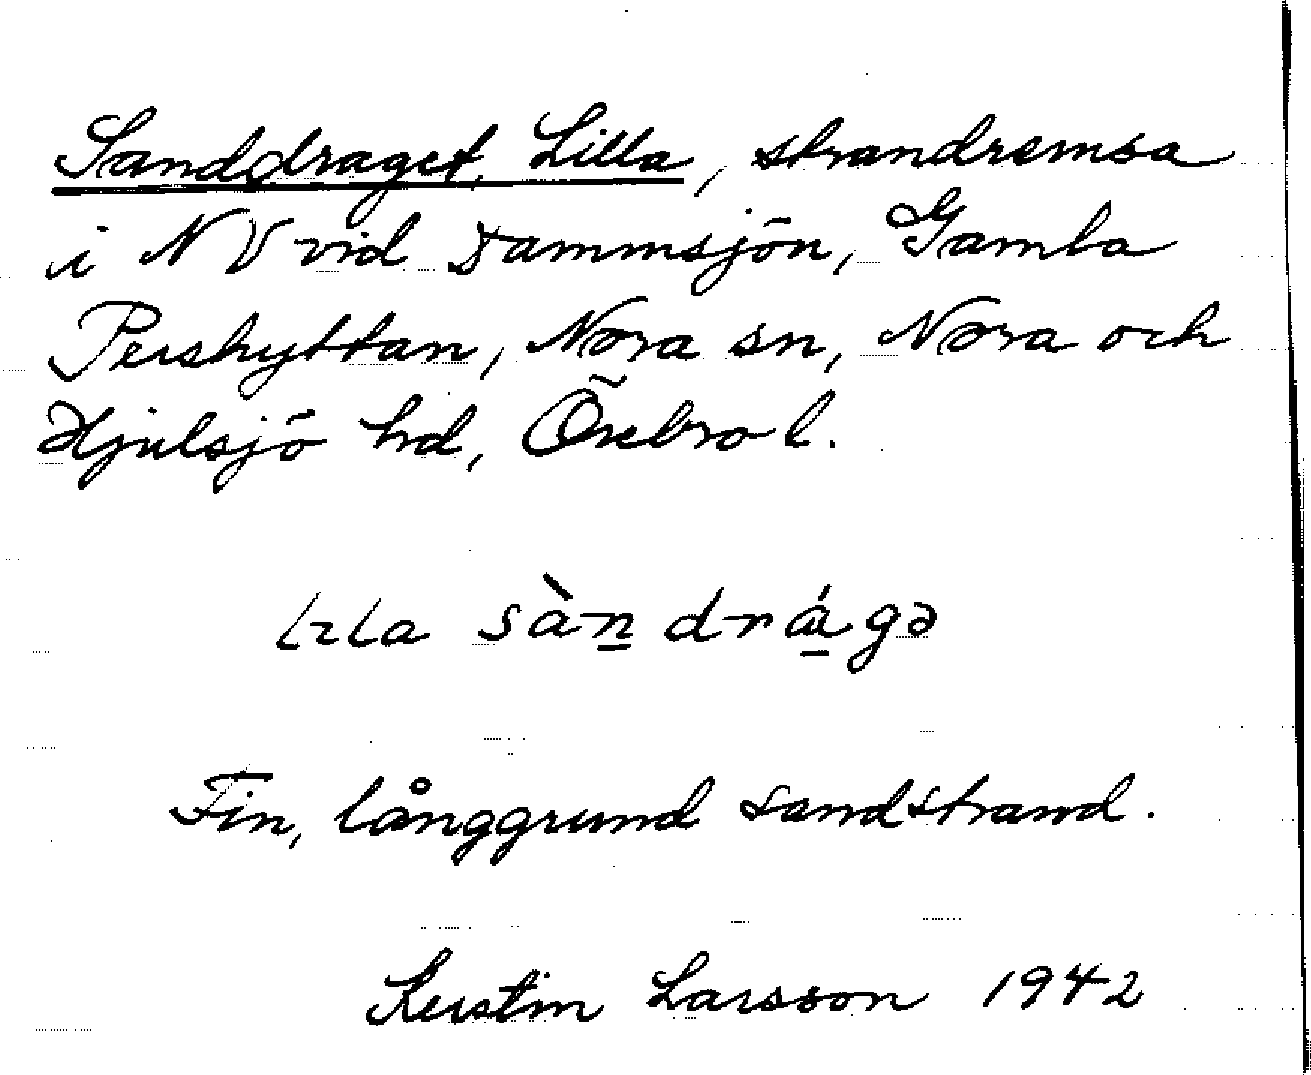 Sanddraget, Lilla, strandremsa
i NV vid Dammsjön, Gamla
Pershyttan, Nora sn, Nora och
Hjulsjö hd, Örebro l.
lɪla sàn̲drá̲gə
Fin, långgrund sandstrand.
Kerstin Larsson 1942